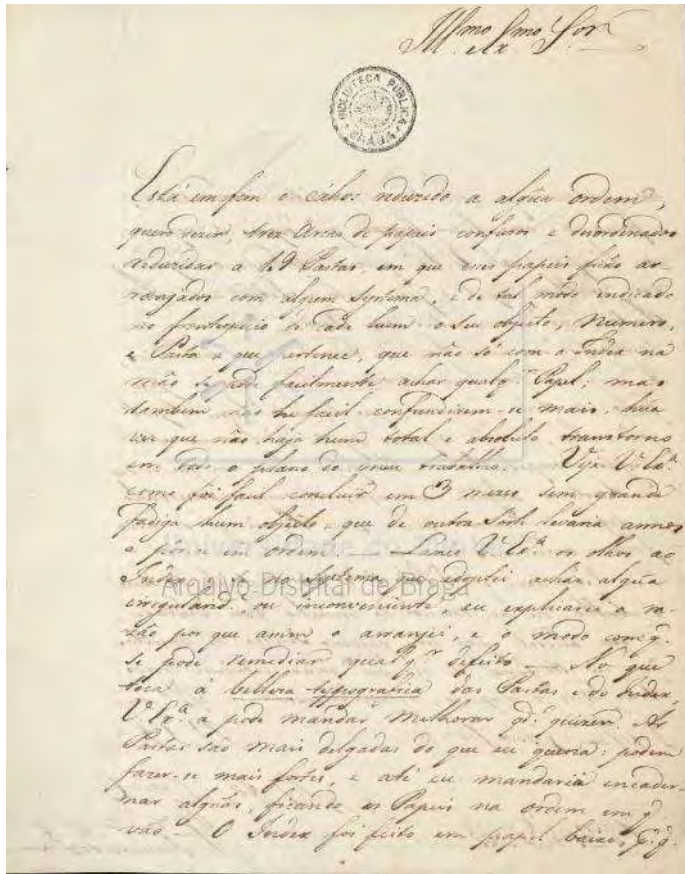 Illmo Exmo Sor
BIBLIOTECA PUBLICA
BRAGA
Está em fim o cáhos reduzido a algũa ordem,
quero dizer, tres Arcas de papeis confusos e desordenados
reduzidas a 19 Pastas, em que esses papeis ficão ar-
ranjados com algum systema, e de tal modo indicado
no frontespicio de cada hum o seu objeto, Numero,
e Pasta a que pertence, que não só com o Index na
mão se pode facilmente achar qualqr. Papel; mas
tambem não he facil confundirem-se mais, hũa
vez que não haja hum total e absoluto transtorno
em todo o plano do meu trabalho. Veja V. Exa.
como foi facil concluir em 3 mezes sem grande
fadiga hum objecto, que de outra sorte levaria annos
a pôr em ordem — Lance V. Exa. os olhos ao
Index, e se no systema que adoptei achar algũa
irregularide., ou inconveniente, eu explicarei a ra-
zão por que assim o arranjei, e o modo com q.
se pode remediar qualqr. defeito — No que
toca á belleza typografica das Pastas e do Index,
V. Exa. a pode mandar melhorar qdo. quizer. As
Pastas são mais delgadas do que eu queria: podem
fazer-se mais fortes, e até eu mandaria encader-
nar algũas, ficando os Papeis na ordem em q.
vão — O Index foi feito em papel baixo, p. q.
Universidade do Minho
Arquivo Distrital de Braga